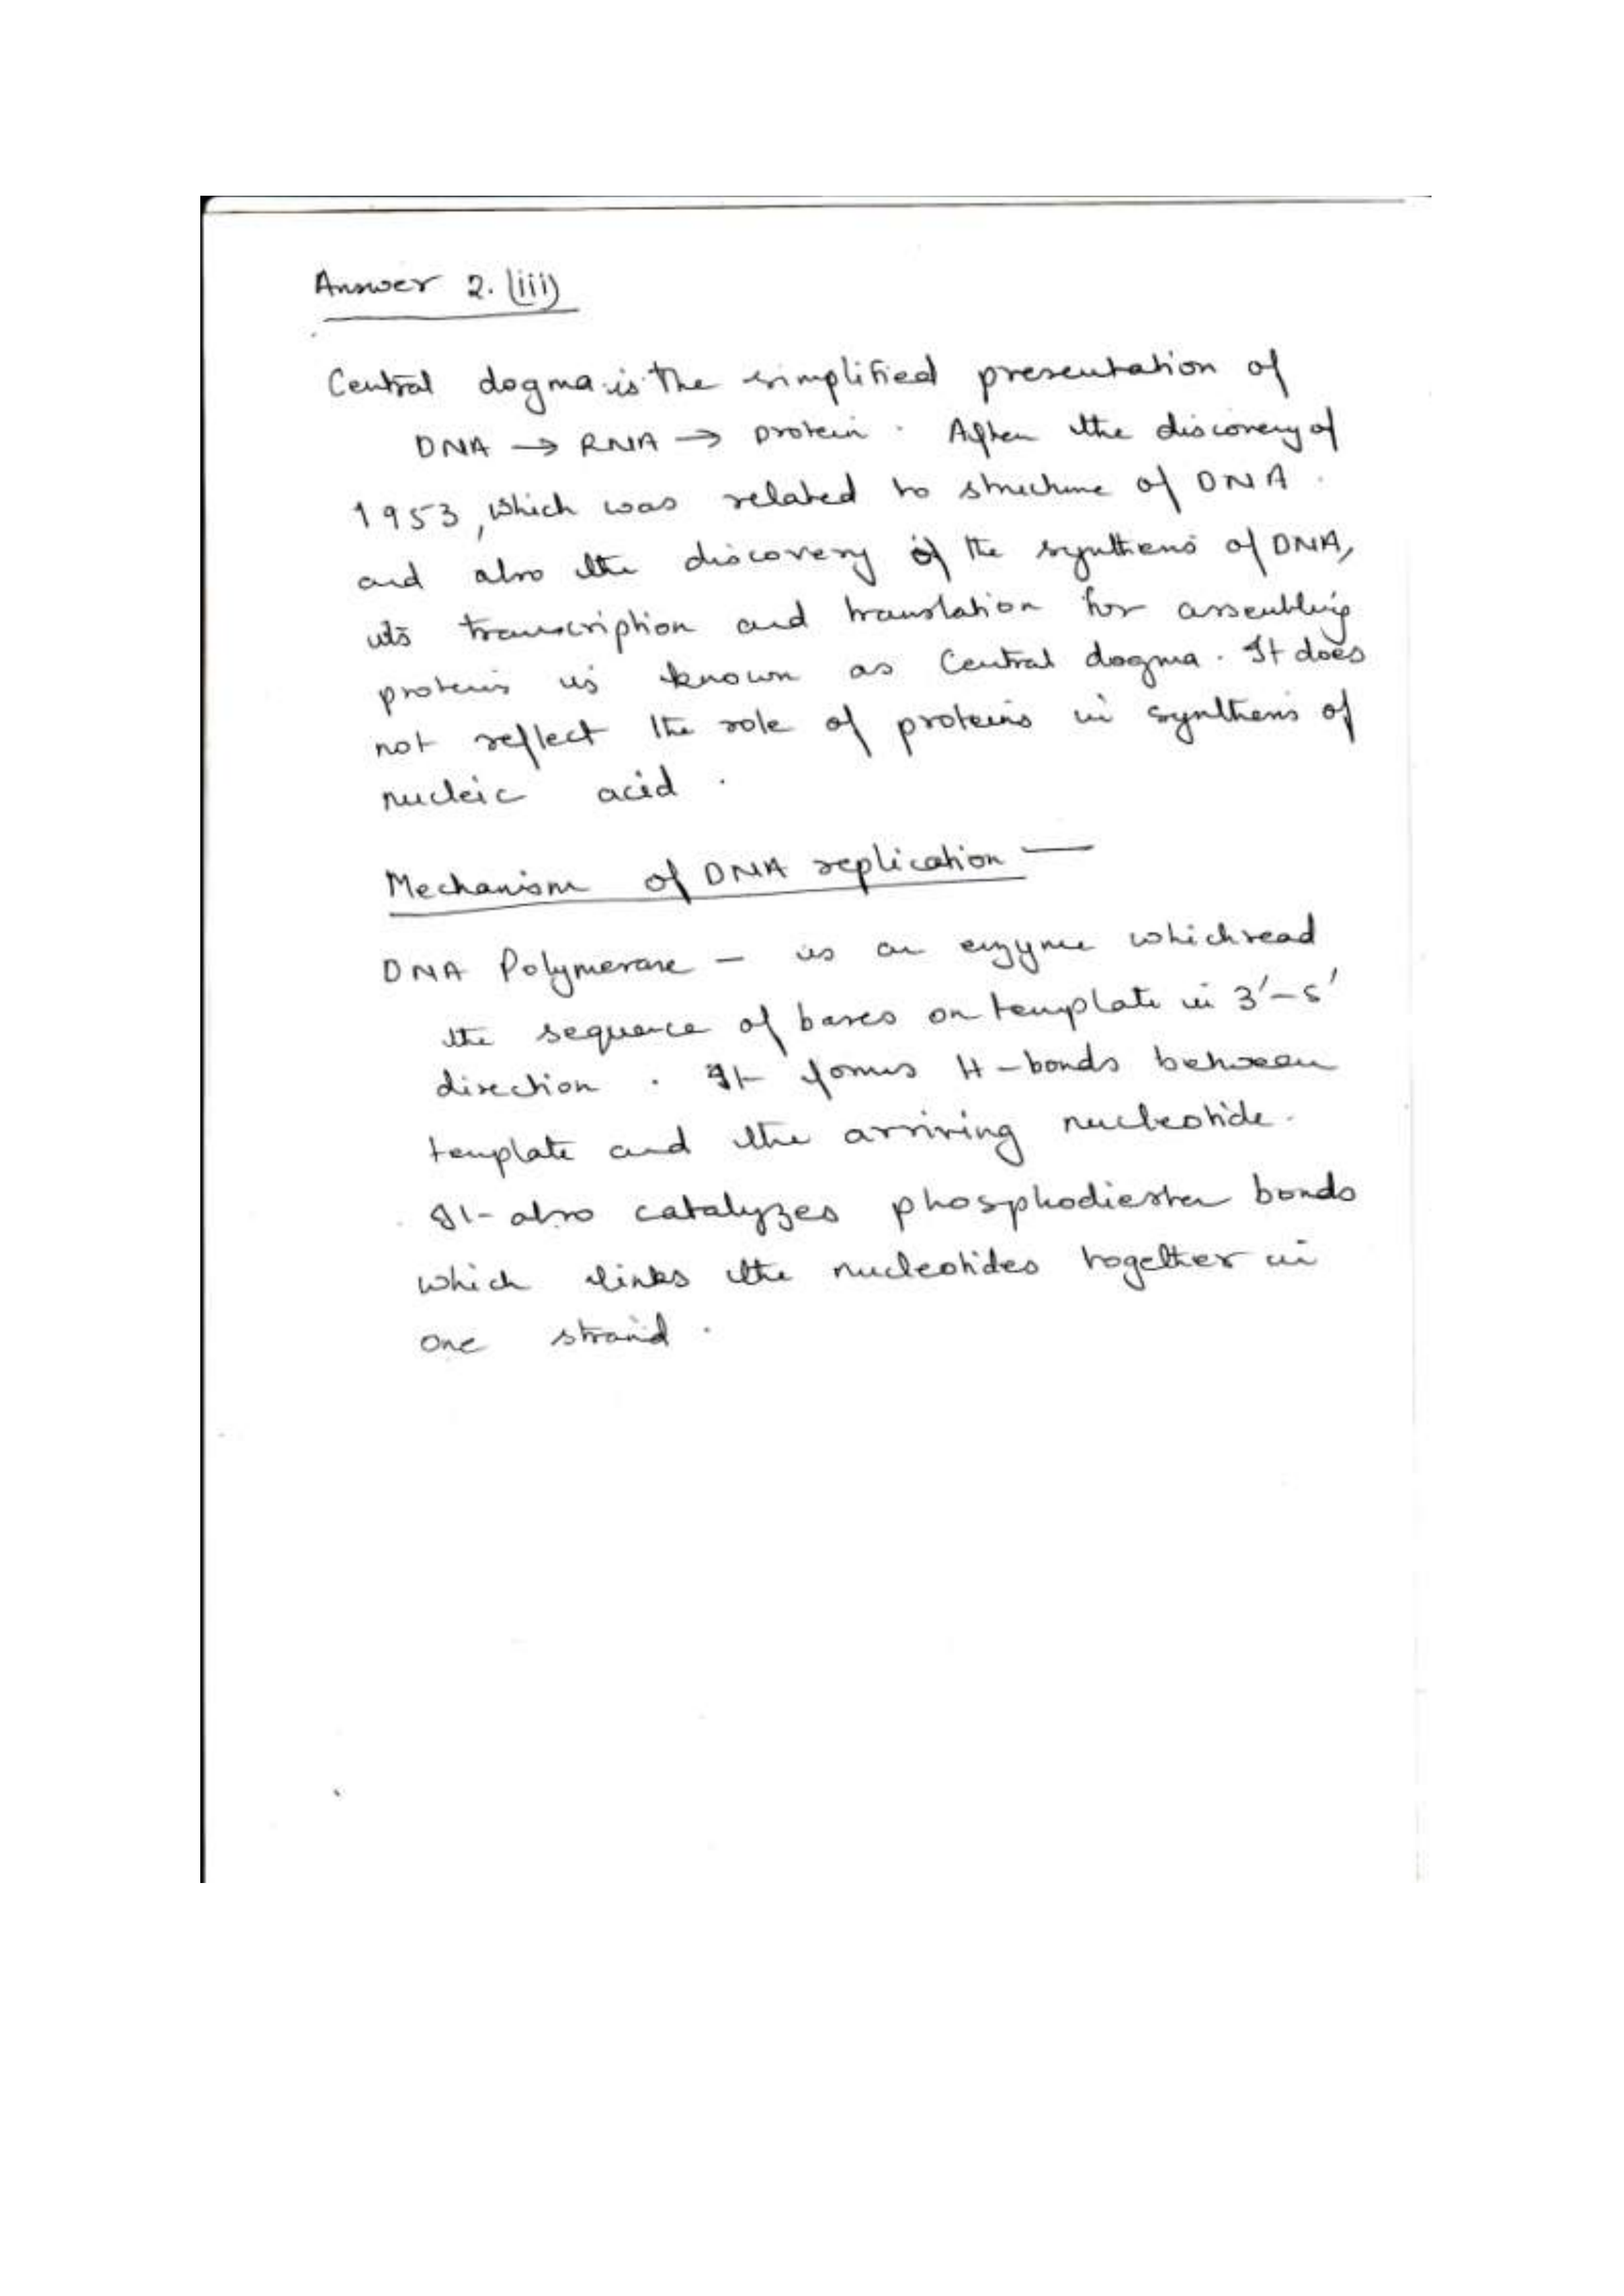 Answer 2. (iii)
Central dogma is the simplified presentation of
DNA → RNA → protein. After the discovery of
1953, which was related to structure of DNA.
and also the discovery of the synthesis of DNA,
its transcription and translation for assembling
proteins is known as Central dogma. It does
not reflect the role of proteins in synthesis of
nucleic acid.
Mechanism of DNA replication —
DNA Polymerase - is an enzyme which read
the sequence of bases on template in 3'-5'
direction. It forms H-bonds between
template and the arriving nucleotide.
It also catalyzes phosphodiester bonds
which links the nucleotides together in
one strand.